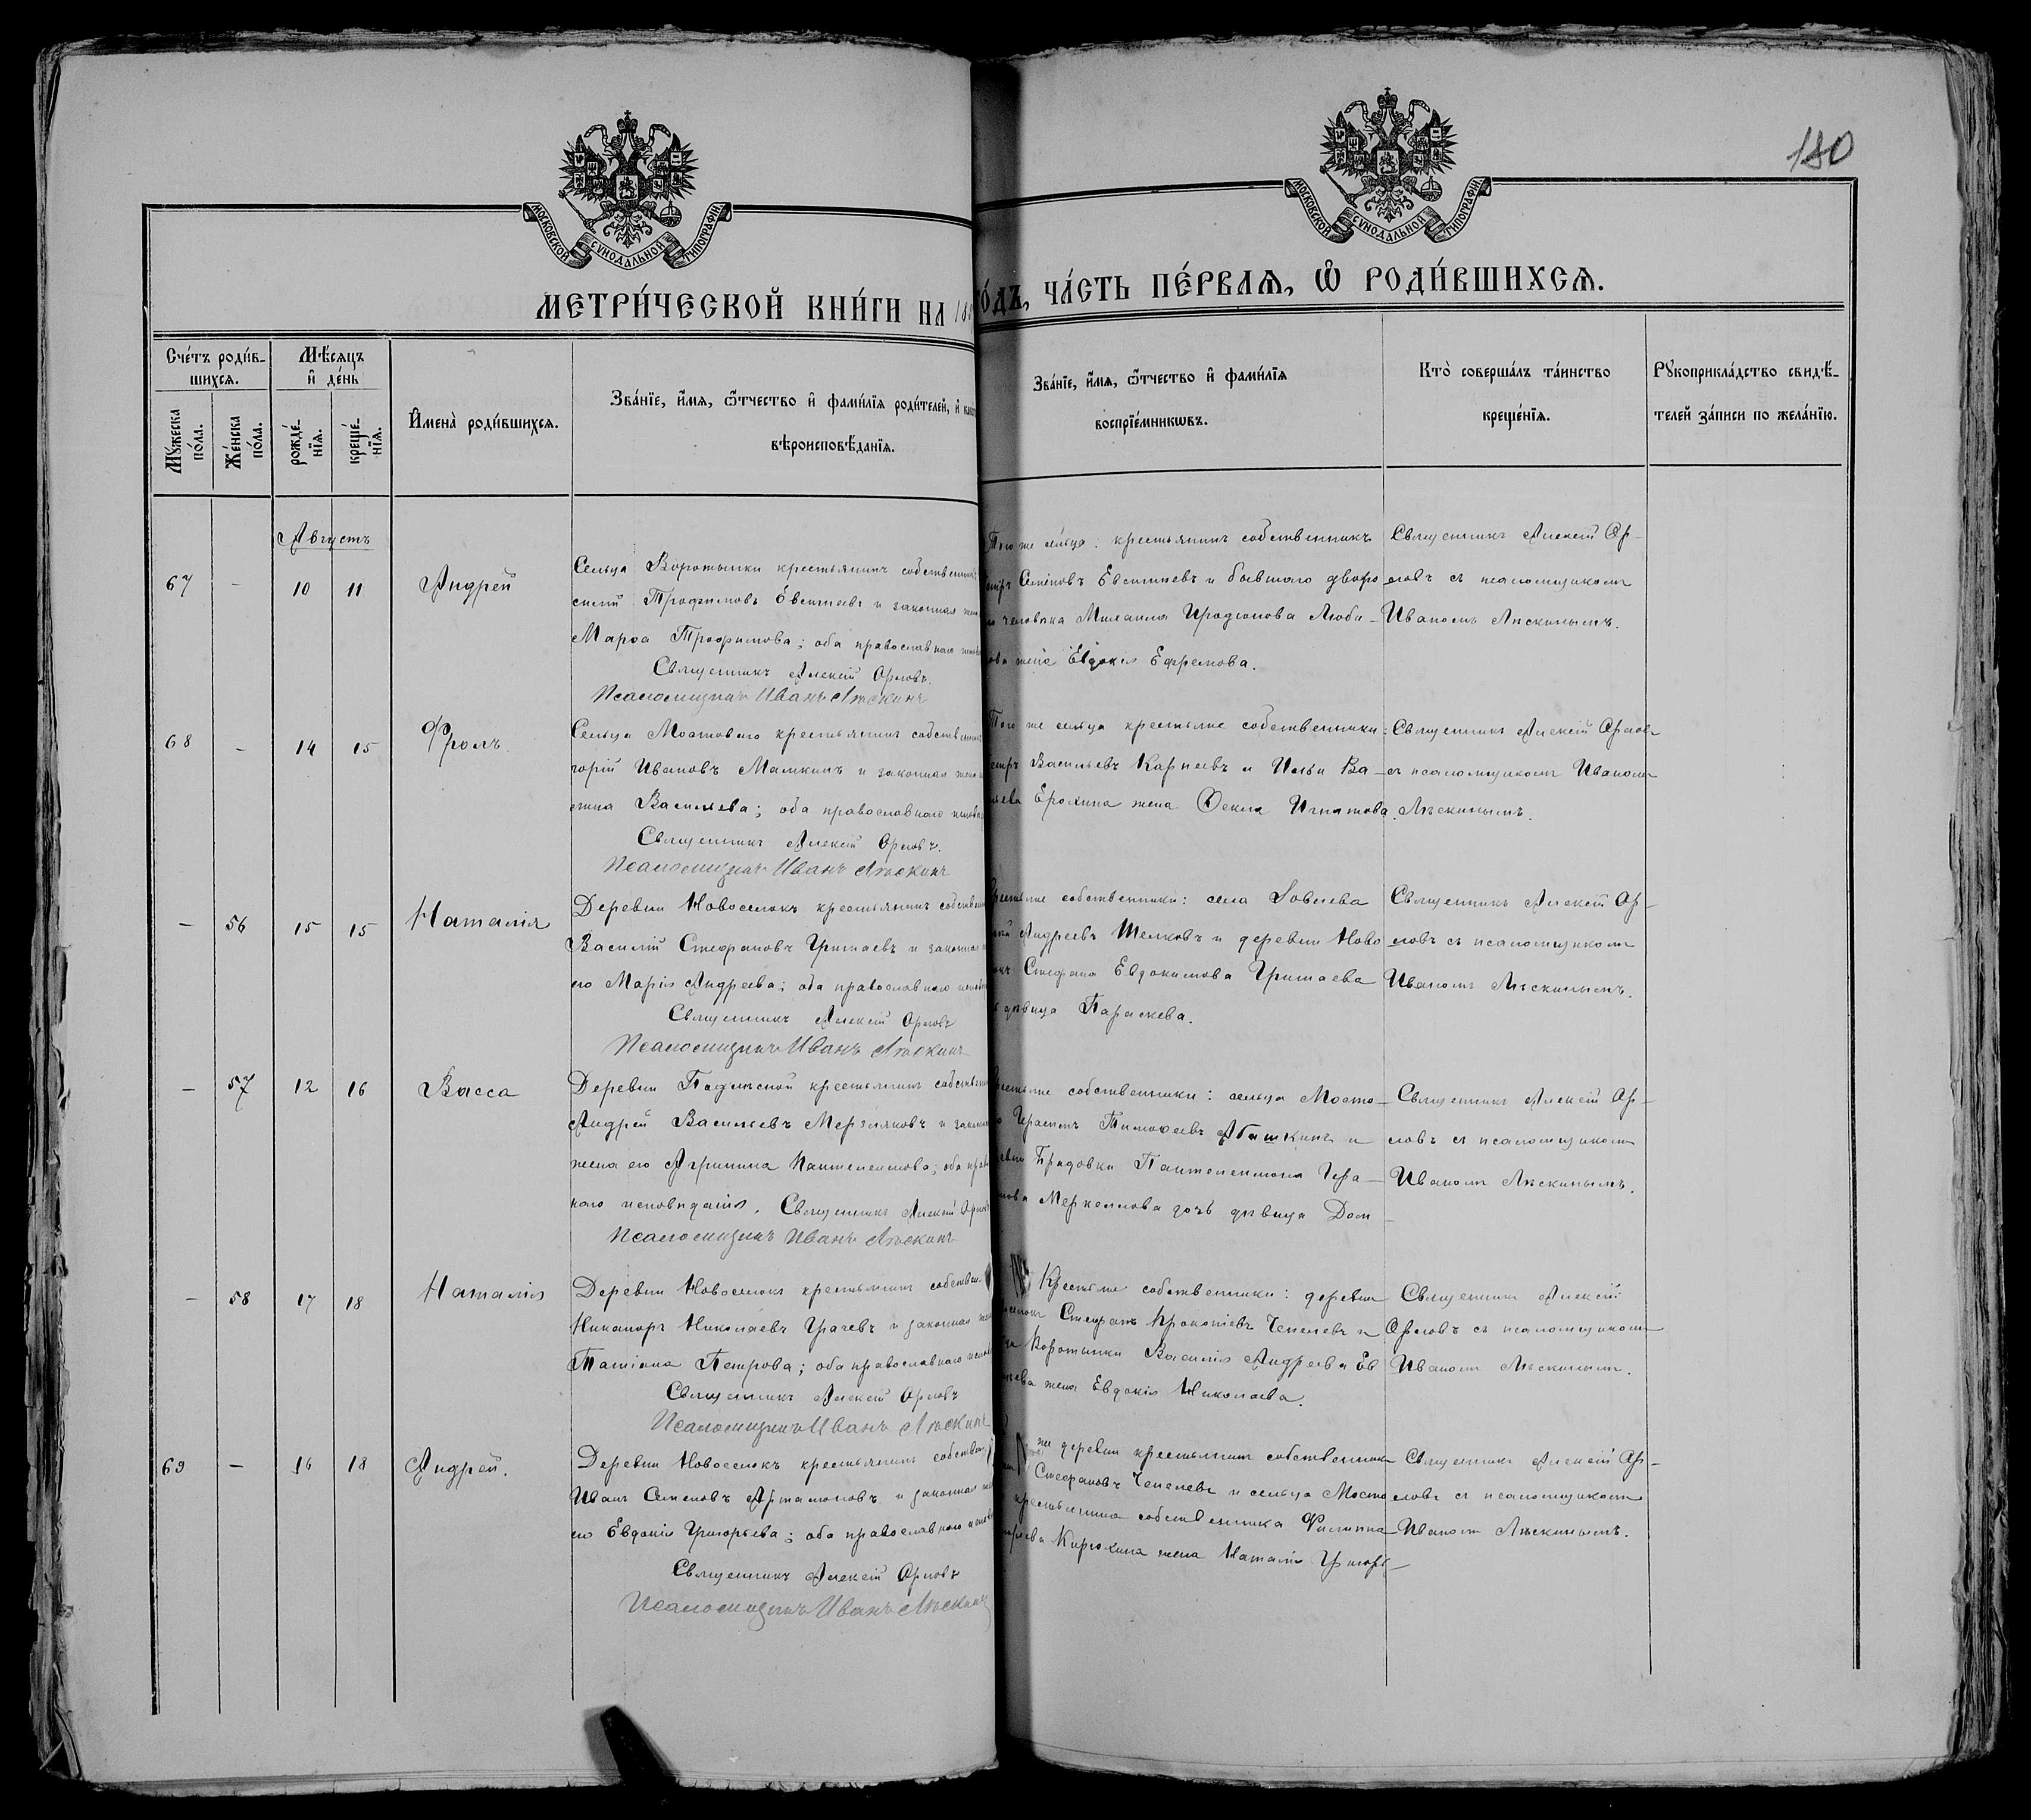 180
МОСКОВСКОЙ СѴНОДАЛЬНОЙ ТИПОГРАФІИ.
МОСКОВСКОЙ СѴНОДАЛЬНОЙ ТИПОГРАФІИ.
МЕТРИ́ЧЕСКОЙ КНИ́ГИ НА 18
ГО́ДЪ, ЧА́СТЬ ПЕ́РВАѦ, Ѽ РОДИ́ВШИХСѦ.
Сче́тъ роди́в-
шихсѧ.
Мꙋжеска
по́ла.
Же́нска
по́ла.
Мѣ́сѧцъ
и҆ де́нь
рожде́-
нїѧ.
креще́-
нїѧ.
И҆мена̀ роди́вшихсѧ.
Зва́нїе, и҆́мѧ, ѻ҆́тчество и҆ фами́лїѧ роди́телей, и҆
вѣроисповѣ́данїѧ.
Зва́нїе, и҆́мѧ, ѻ҆́тчество и҆ фами́лїѧ
воспрїе́мникѡвъ.
Кто̀ соверша́лъ та́инство
креще́нїѧ.
Рꙋкоприкла́дство свидѣ́-
телей за́писи по жела́нїю.
Августъ
67 - 10 11 Андрей
Сельца Воротынки крестьянинъ собственникъ
Трофимовъ Евстигнеевъ и законная жена
Марѳа Трофимова; оба православнаго
Священникъ Алексій Орловъ.
Псаломщикъ Иванъ Лѣскинъ
Того же сельца: крестьянинъ собственникъ
Семеновъ Евстигнеевъ и бывшаго дворо
человѣка Михаила Иродіонова Люби-
жена Евдокія Ефремова.
Священникъ Алексій Ор-
ловъ съ псаломщикомъ
Иваномъ Лѣскинымъ.
68 - 14 15 Фролъ.
Сельца Мостоваго крестьянинъ
горій Ивановъ Мамкинъ и законная жена
Васильева; оба православнаго
Священникъ Алексій Орловъ.
Псаломщикъ Иванъ Лѣскинъ
Того же сельца крестьяне собственники:
Васильевъ Карпеевъ и Ильи Ва-
Ерохина жена Ѳекла Игнатова.
Священникъ Алексій Орловъ
съ псаломщикомъ Иваномъ
Лѣскинымъ.
- 56 15 15 Наталія
Деревни Новоселокъ крестьянинъ
Василій Стефановъ Гришаевъ и законная
его Марія Андреева; оба православнаго
Священникъ Алексій Орловъ
Псаломщикъ Иванъ Лѣскинъ
собственники: села
Андреевъ Шелковъ и деревни Ново
Стефана Евдокимова Гришаева
дѣвица Параскева.
Священникъ Алексій Ор-
ловъ съ псаломщикомъ
Иваномъ Лѣскинымъ.
- 57 12 16 Васса
Деревни крестьянинъ
Андрей Васильевъ Мерзляковъ и
жена его Агрипина Пантелеимова; оба
наго исповѣданія. Священникъ Алексій Орловъ
Псаломщикъ Иванъ Лѣскинъ
собственники: сельца Мосто-
Герасимъ Тимоѳеевъ Абашкинъ и
Пантелеимона Гера-
Меркеллова дочь дѣвица Дом-
Священникъ Алексій Ор-
ловъ съ псаломщикомъ
Иваномъ Лѣскинымъ.
- 58 17 18 Наталія
Деревни Новоселокъ крестьянинъ
Никаноръ Николаевъ Грачевъ и законная
Татіана Петрова; оба православнаго
Священникъ Алексій Орловъ
Псаломщикъ Иванъ Лѣскинъ
Крестьяне собственники: деревни
Стефанъ Прокопіевъ Чепелевъ и
Воротынки Василія Андреева Ев
жена Евдокія Николаева.
Священникъ Алексій
Орловъ съ псаломщикомъ
Иваномъ Лѣскинымъ.
69 - 16 18 Андрей.
Деревни Новоселокъ крестьянинъ
Иванъ Семеновъ Артамоновъ и законная
его Евдокія Григорьева; оба православнаго
Священникъ Алексій Орловъ
Псаломщикъ Иванъ Лѣскинъ
же деревни крестьянинъ собственникъ
Стефановъ Чепелевъ и сельца Мосто
крестьянина собственника Филиппа
Кирюхина жена Наталія Григорь-
Священникъ Алексій Ор-
ловъ съ псаломщикомъ
Иваномъ Лѣскинымъ.